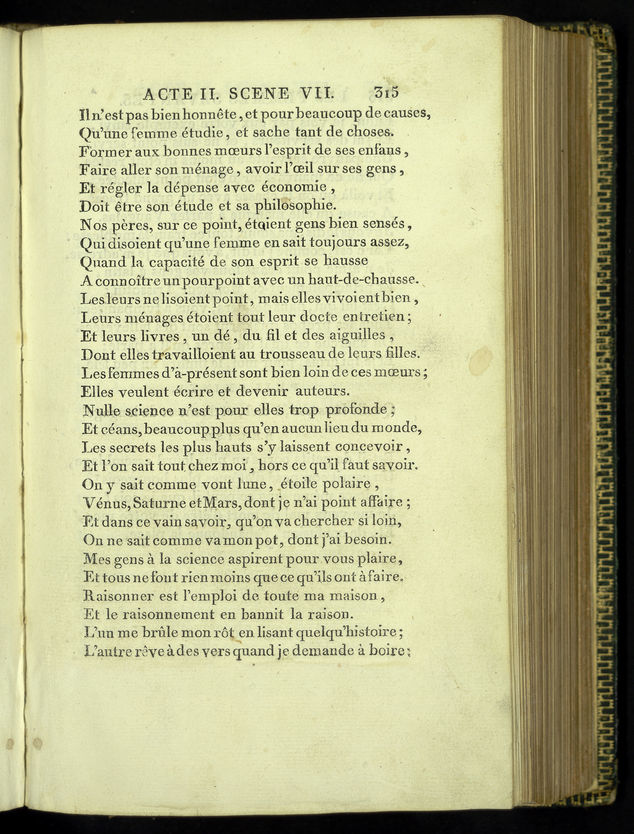 ACTE II. SCENE VII. 315
Il n'est pas bien honnête, et pour beaucoup de causes,
Qu'une femme étudie, et sache tant de choses.
Former aux bonnes mœurs l'esprit de ses enfans,
Faire aller son ménage, avoir l'œil sur ses gens,
Et régler la dépense avec économie,
Doit être son étude et sa philosophie.
Nos pères, sur ce point, étoient gens bien sensés,
Qui disoient qu'une femme en sait toujours assez,
Quand la capacité de son esprit se hausse
A connoître un pourpoint avec un haut-de-chausse.
Les leurs ne lisoient point, mais elles vivoient bien,
Leurs ménages étoient tout leur docte entretien;
Et leurs livres, un dé, du fil et des aiguilles,
Dont elles travailloient au trousseau de leurs filles.
Les femmes d'à-présent sont bien loin de ces mœurs;
Elles veulent écrire et devenir auteurs.
Nulle science n'est pour elles trop profonde;
Et céans, beaucoup plus qu'en aucun lieu du monde,
Les secrets les plus hauts s'y laissent concevoir,
Et l'on sait tout chez moi, hors ce qu'il faut savoir.
On y sait comme vont lune, étoile polaire,
Vénus, Saturne et Mars, dont je n'ai point affaire;
Et dans ce vain savoir, qu'on va chercher si loin,
On ne sait comme va mon pot, dont j'ai besoin.
Mes gens à la science aspirent pour vous plaire,
Et tous ne font rien moins que ce qu'ils ont à faire.
Raisonner est l'emploi de toute ma maison,
Et le raisonnement en bannit la raison.
L'un me brûle mon rôt en lisant quelqu'histoire;
L'autre rêve à des vers quand je demande à boire;